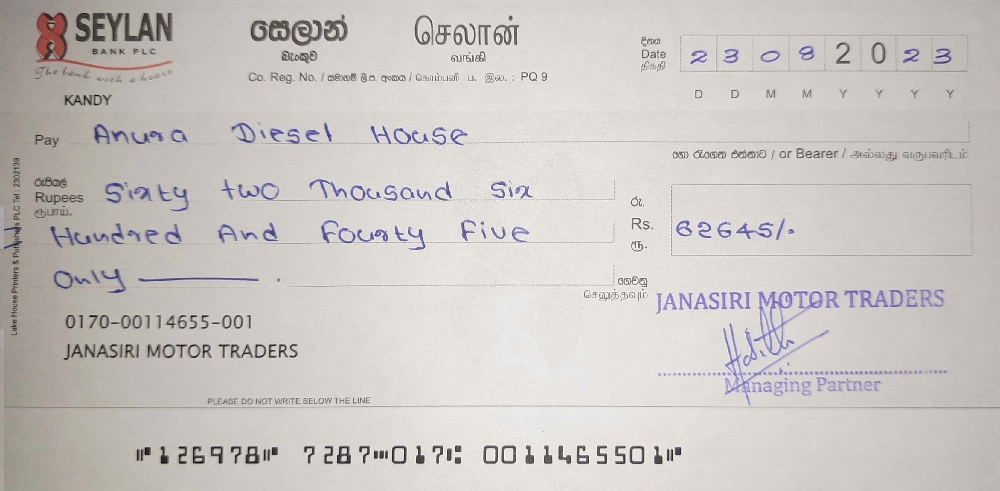 SEYLAN
BANK PLC
The bank with a heart
සෙලාන්
බැංකුව
செலான்
வங்கி
Co. Reg. No. / සමාගම් ලි.ප. අංකය / கொம்பனி ப. இல. : PQ 9
දිනය
Date
திகதி
2 3 0 8 2 0 2 3
D D M M Y Y Y Y
KANDY
Pay Anura Diesel House
හෝ රැගෙන එන්නාට / or Bearer / அல்லது வருபவரிடம்
රුපියල්
Rupees
ரூபாய்.
Sixty two Thousand Six
Hundred And Fourty Five
Only
රු.
Rs. 62645/-
ரூ.
ගෙවනු
செலுத்தவும்
JANASIRI MOTOR TRADERS
Managing Partner
0170-00114655-001
JANASIRI MOTOR TRADERS
PLEASE DO NOT WRITE BELOW THE LINE
⑈126978⑈ 7287⑉017⑆ 0011465501⑈
Lake House Printers & Publishers PLC Tel : 2302139